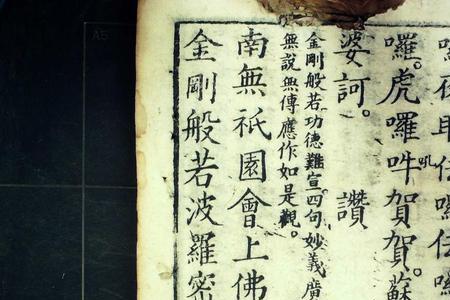 囉。虎囉吽賀賀。蘇
吼
婆訶。 讚
金剛般若。功德難宣。四句妙義廣
無說無傳應作如是觀。
南無祇園會上佛
金剛般若波羅密
A5